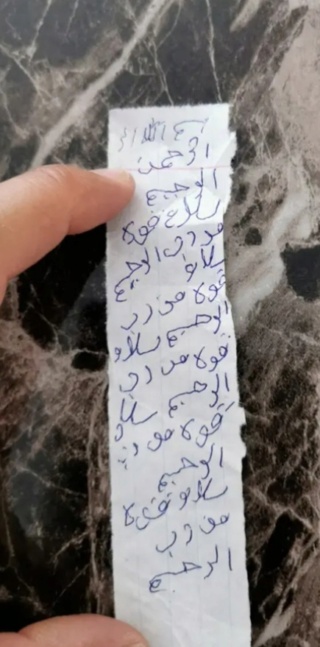 بسم الله
الرحمن
الرحيم
سلام قولا
من رب الرحيم
سلام
قولا من رب
الرحيم سلام
قولا من رب
الرحيم سلام
قولا من رب
الرحيم
سلام قولا
من رب
الرحيم